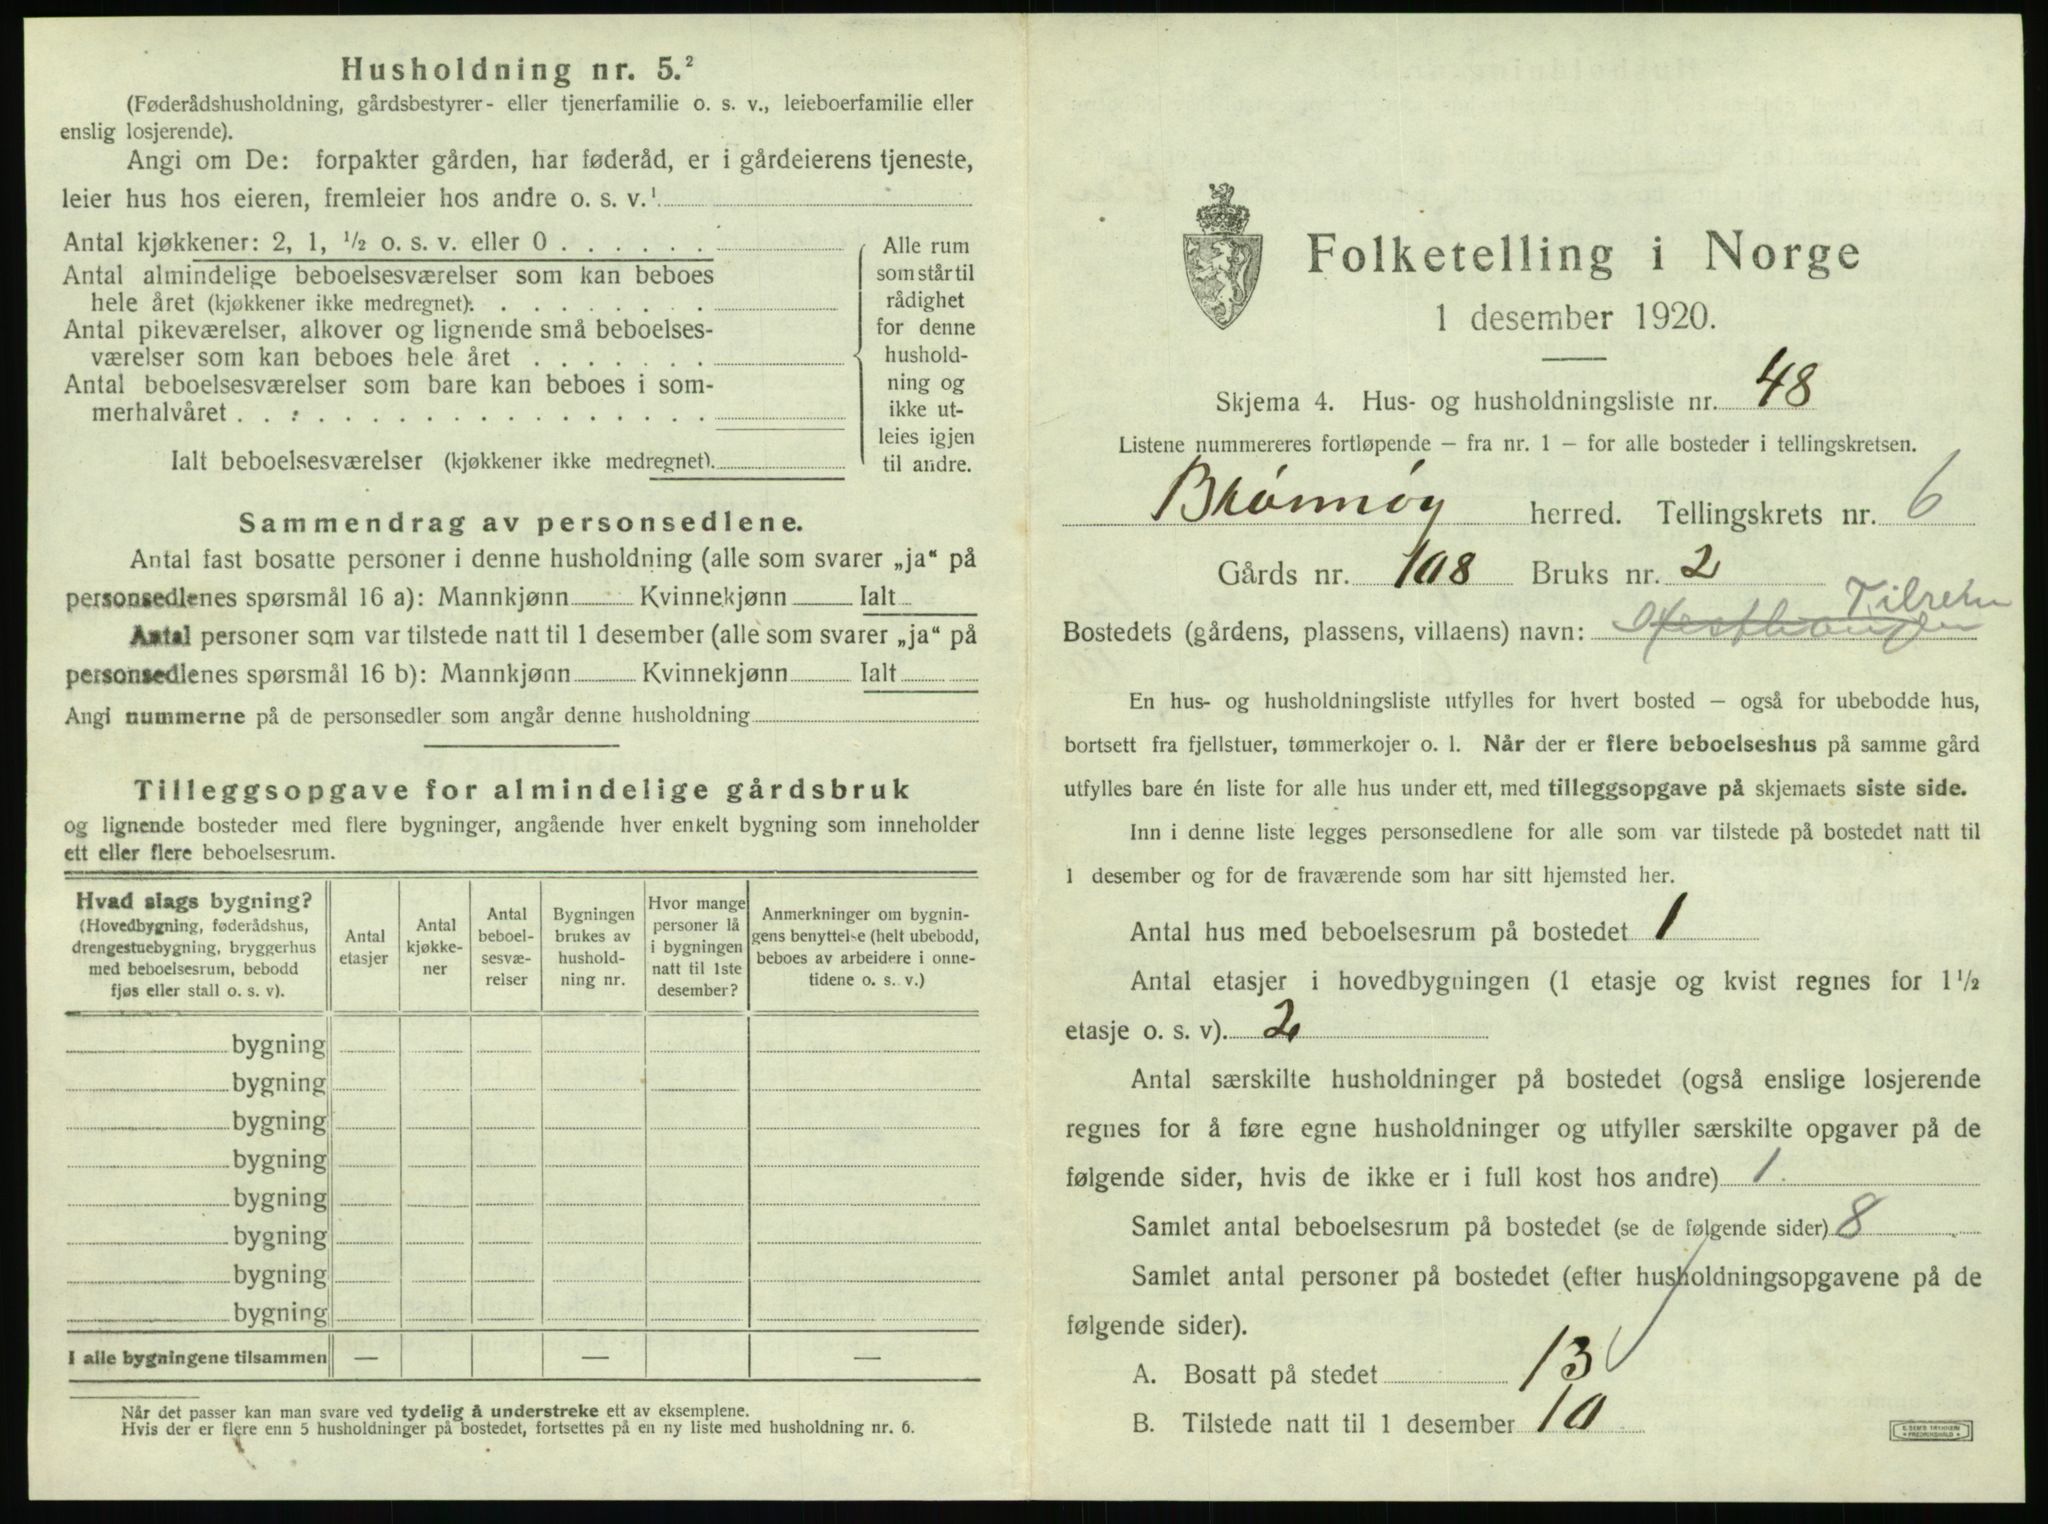 Husholdning nr. 5.²
(Føderådshusholdning, gårdsbestyrer- eller tjenerfamilie o. s. v., leieboerfamilie eller
enslig losjerende).
Angi om De: forpakter gården, har føderåd, er i gårdeierens tjeneste,
leier hus hos eieren, fremleier hos andre o. s. v.¹
Antal kjøkkener: 2, 1, ½ o. s. v. eller 0 . . . . . .
Antal almindelige beboelsesværelser som kan beboes
hele året (kjøkkener ikke medregnet). . . . . . . . .
Antal pikeværelser, alkover og lignende små beboelses-
værelser som kan beboes hele året . . . . . . .
Antal beboelsesværelser som bare kan beboes i som-
merhalvåret . . . . . . . . . . . . . . . . . .
Ialt beboelsesværelser (kjøkkener ikke medregnet).
Alle rum
som står til
rådighet
for denne
hushold-
ning og
ikke ut-
leies igjen
til andre.
Sammendrag av personsedlene.
Antal fast bosatte personer i denne husholdning (alle som svarer „ja“ på
personsedlenes spørsmål 16 a): Mannkjønn Kvinnekjønn Ialt
Antal personer som var tilstede natt til 1 desember (alle som svarer „ja“ på
personsedlenes spørsmål 16 b): Mannkjønn Kvinnekjønn Ialt
Angi nummerne på de personsedler som angår denne husholdning
Tilleggsopgave for almindelige gårdsbruk
og lignende bosteder med flere bygninger, angående hver enkelt bygning som inneholder
ett eller flere beboelsesrum.
Hvad slags bygning?
(Hovedbygning, føderådshus,
drengestuebygning, bryggerhus
med beboelsesrum, bebodd
fjøs eller stall o. s. v).
Antal
etasjer
Antal
kjøkke-
ner
Antal
beboel-
sesvæ-
relser
Bygningen
brukes av
hushold-
ning nr.
Hvor mange
personer lå
i bygningen
natt til 1ste
desember?
Anmerkninger om bygnin-
gens benyttelse (helt ubebodd,
beboes av arbeidere i onne-
tidene o. s. v.)
bygning
bygning
bygning
bygning
bygning
bygning
bygning
bygning
I alle bygningene tilsammen — — —
Når det passer kan man svare ved tydelig å understreke ett av eksemplene.
Hvis der er flere enn 5 husholdninger på bostedet, fortsettes på en ny liste med husholdning nr. 6.
Folketelling i Norge
1 desember 1920.
Skjema 4. Hus- og husholdningsliste nr. 48
Listene nummereres fortløpende – fra nr. 1 – for alle bosteder i tellingskretsen.
Brønnøy herred. Tellingskrets nr. 6
Gårds nr. 108 Bruks nr. 2
Tilrem
Bostedets (gårdens, plassens, villaens) navn: Hesthaugen
En hus- og husholdningsliste utfylles for hvert bosted – også for ubebodde hus,
bortsett fra fjellstuer, tømmerkojer o. l. Når der er flere beboelseshus på samme gård
utfylles bare én liste for alle hus under ett, med tilleggsopgave på skjemaets siste side.
Inn i denne liste legges personsedlene for alle som var tilstede på bostedet natt til
1 desember og for de fraværende som har sitt hjemsted her.
Antal hus med beboelsesrum på bostedet 1
Antal etasjer i hovedbygningen (1 etasje og kvist regnes for 1½
etasje o. s. v). 2
Antal særskilte husholdninger på bostedet (også enslige losjerende
regnes for å føre egne husholdninger og utfyller særskilte opgaver på de
følgende sider, hvis de ikke er i full kost hos andre) 1
Samlet antal beboelsesrum på bostedet (se de følgende sider) 8
Samlet antal personer på bostedet (efter husholdningsopgavene på de
følgende sider).
A. Bosatt på stedet 13
B. Tilstede natt til 1 desember 10